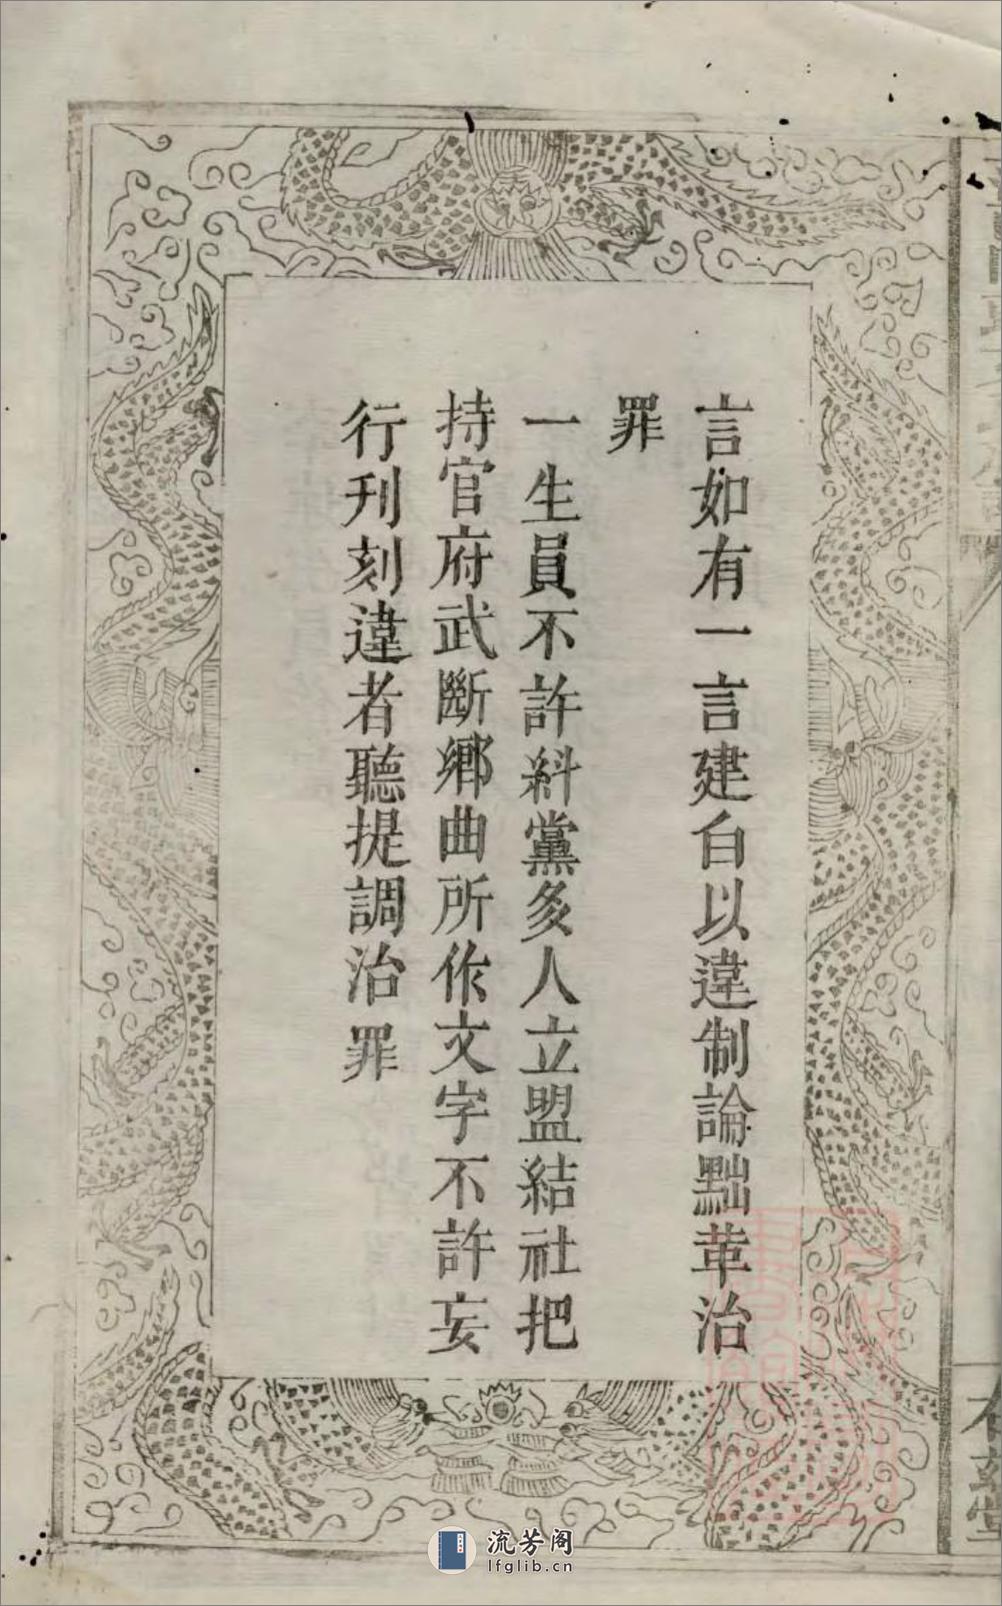 言如有一言建白以違制論黜革治
罪
一生員不許糾黨多人立盟結社把
持官府武斷鄉曲所作文字不許妄
行刊刻違者聽提調治罪
流芳阁
lfglib.cn